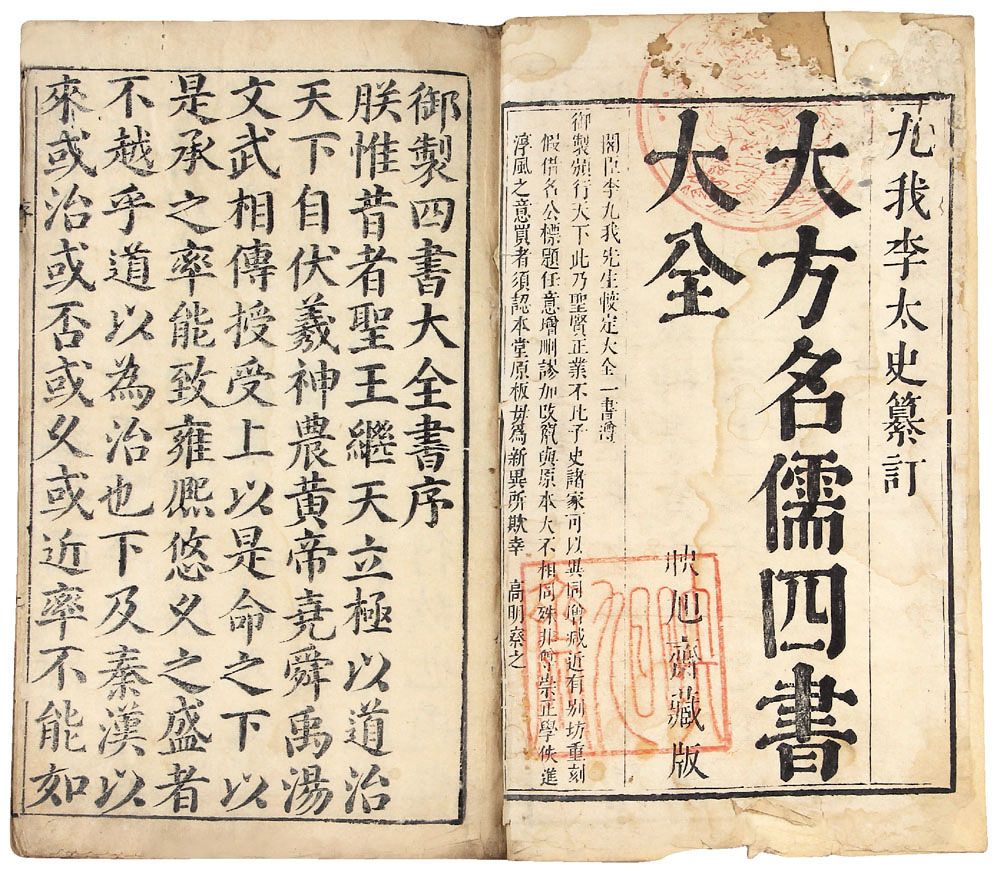 九我李太史纂訂
大方名儒四書
大全
映旭齋藏版
閣臣李九我先生恔定大全一書遵
御製頒行天下此乃聖賢正業不比子史諸家可以異同增减近有别坊重刻
假借名公標題任意增刪謬加改竄與原本大不相同殊非尊崇正學佚進
淳風之意買者須認本堂原板毋爲新異所欺幸 高明察之
御製四書大全書序
朕惟昔者聖王繼天立極以道治
天下自伏羲神農黄帝堯舜禹湯
文武相傳授受上以是命之下以
是承之率能致雍熈悠久之盛者
不越乎道以為治也下及秦漢以
來或治或否或久或近率不能如